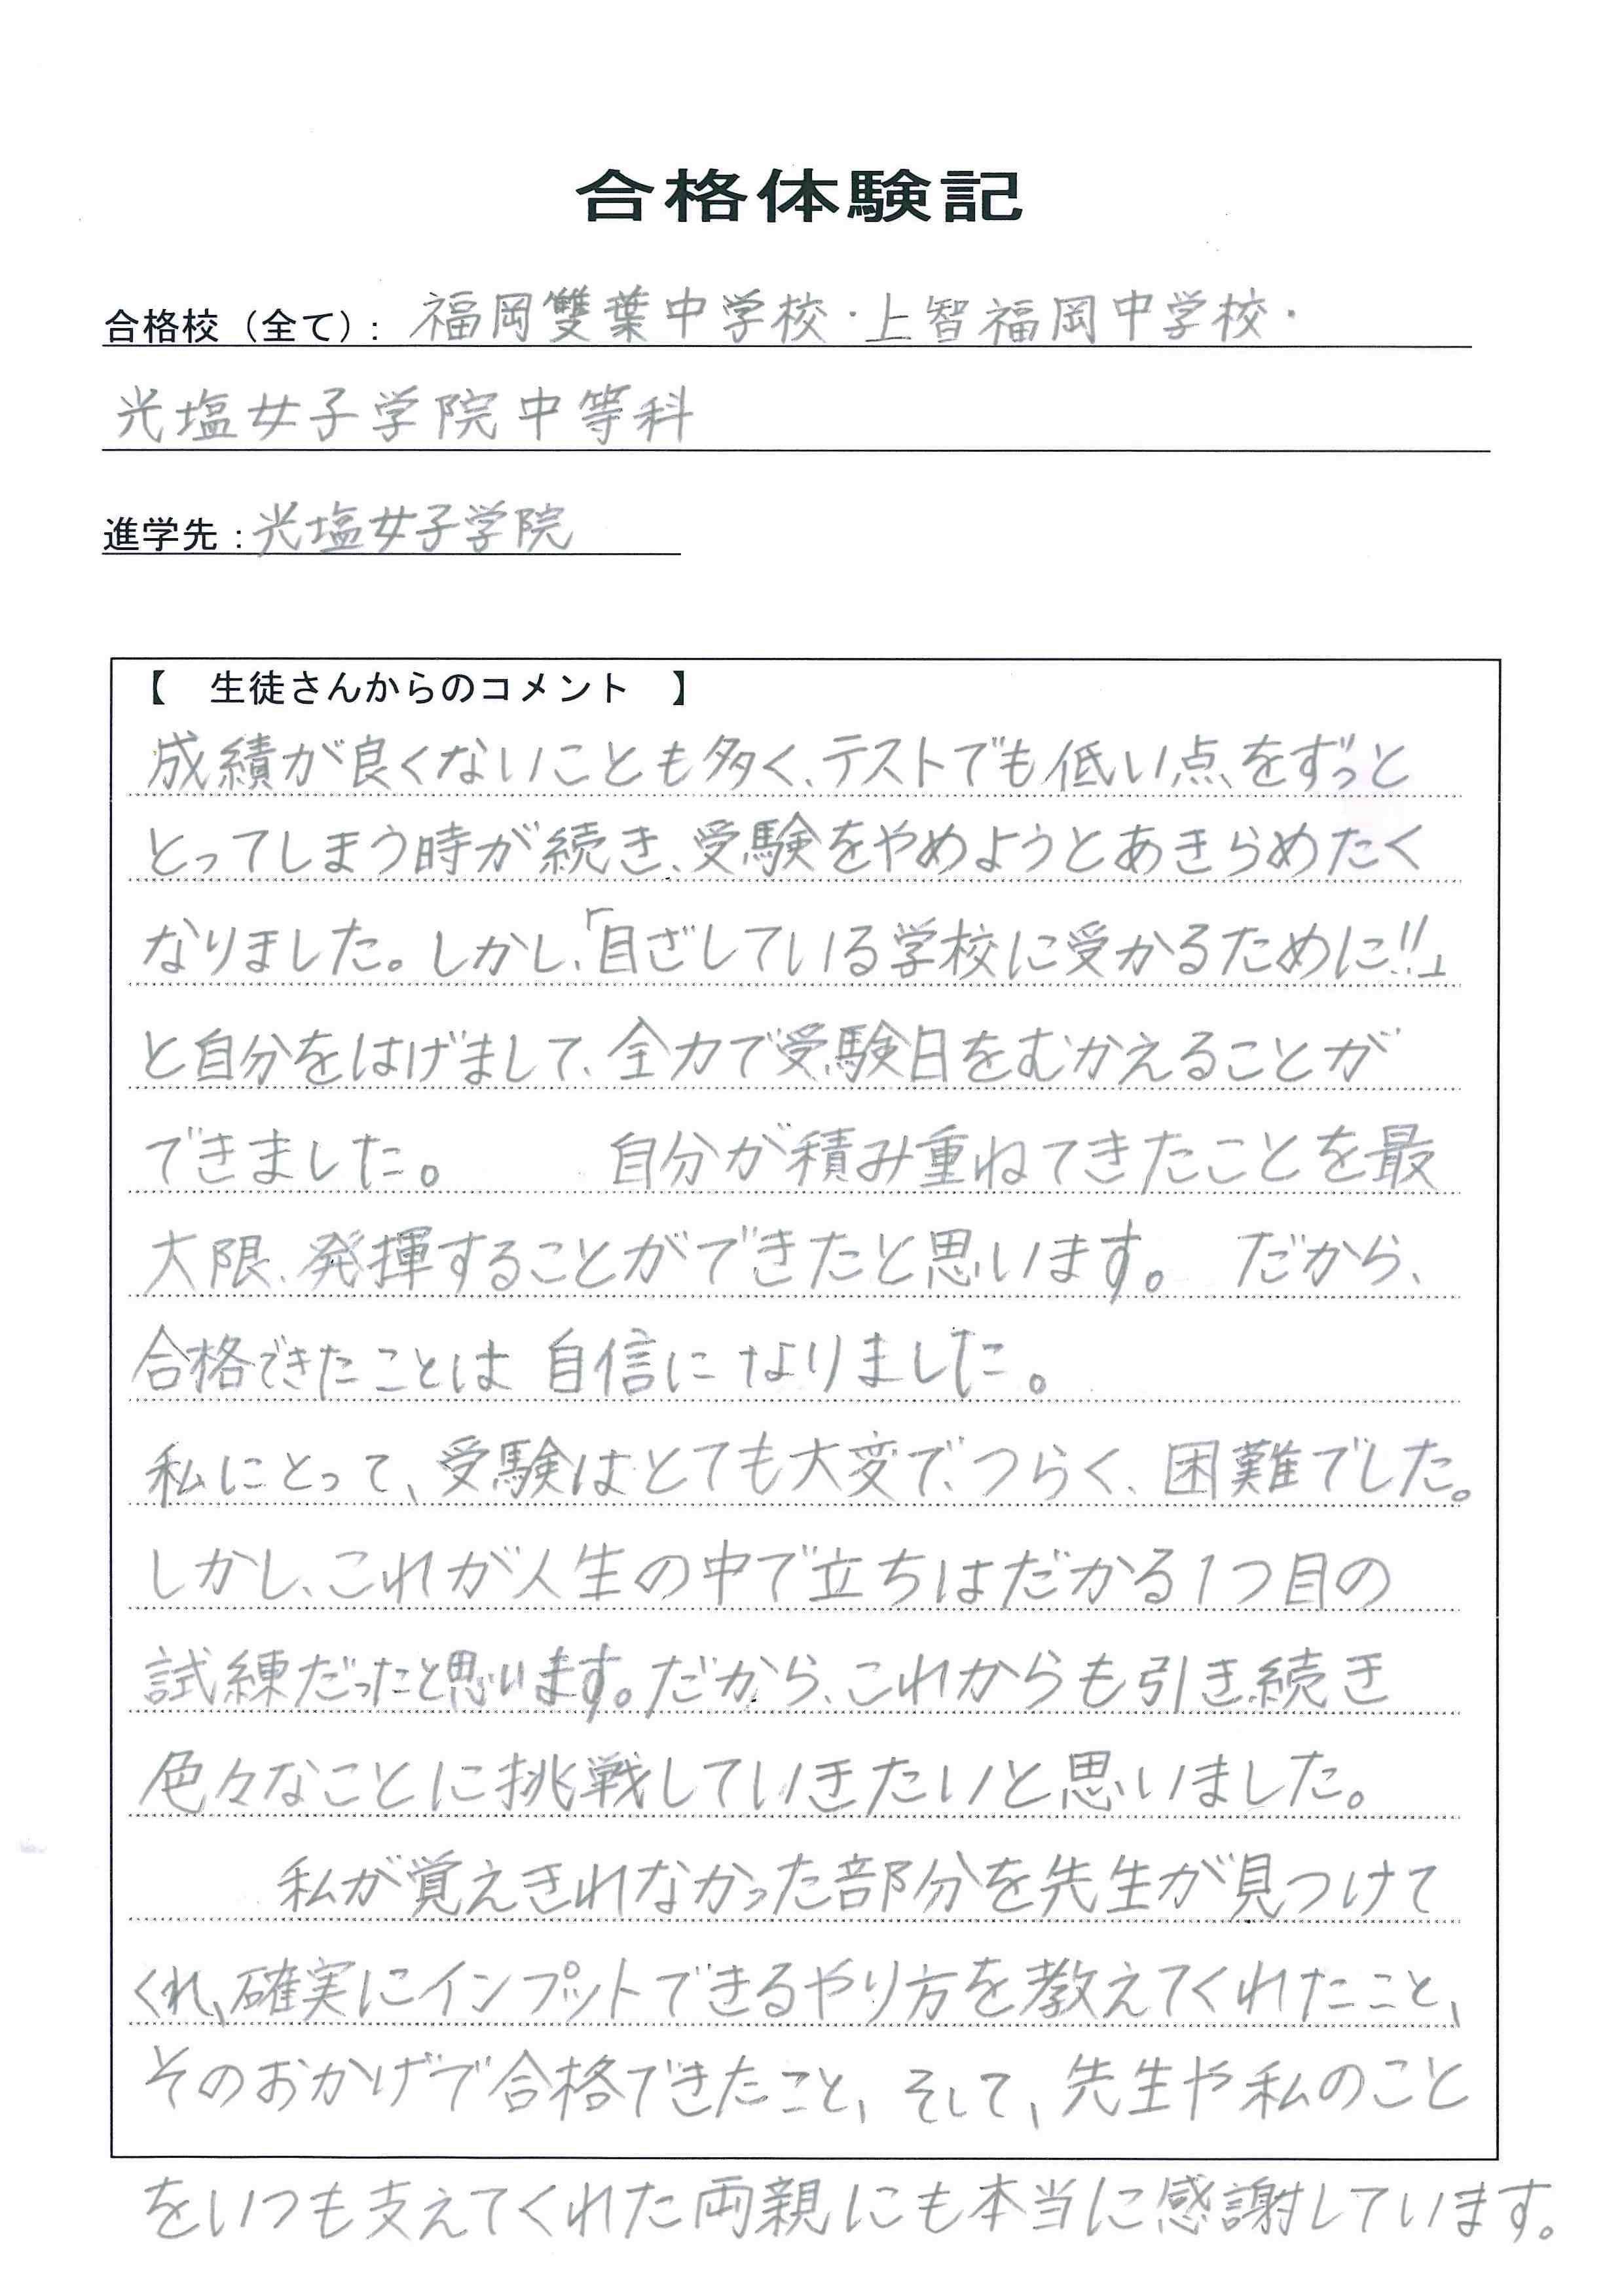 合格体験記
合格校（全て）: 福岡雙葉中学校・上智福岡中学校・
光塩女子学院中等科
進学先：光塩女子学院
【　生徒さんからのコメント　】
成績が良くないことも多く、テストでも低い点をずっと
とってしまう時が続き、受験をやめようとあきらめたく
なりました。しかし、「目ざしている学校に受かるために!!」
と自分をはげまして、全力で受験日をむかえることが
できました。　　自分が積み重ねてきたことを最
大限、発揮することができたと思います。　だから、
合格できたことは 自信になりました。
私にとって、受験はとても大変で、つらく、困難でした。
しかし、これが人生の中で立ちはだかる1つ目の
試練だったと思います。だから、これからも引き続き
色々なことに挑戦していきたいと思いました。
私が覚えきれなかった部分を先生が見つけて
くれ、確実にインプットできるやり方を教えてくれたこと、
そのおかげで合格できたこと、そして、先生や私のこと
をいつも支えてくれた両親にも本当に感謝しています。